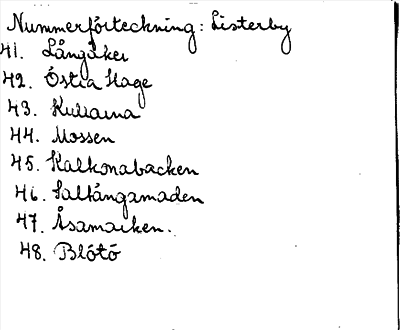 Nummerförteckning: Listerby
41. Långåker
42. Östra Hage
43. Kullarna
44. Mossen
45. Kalkonabacken
46. Saltängamaden
47. Åsamarken.
48. Blötö